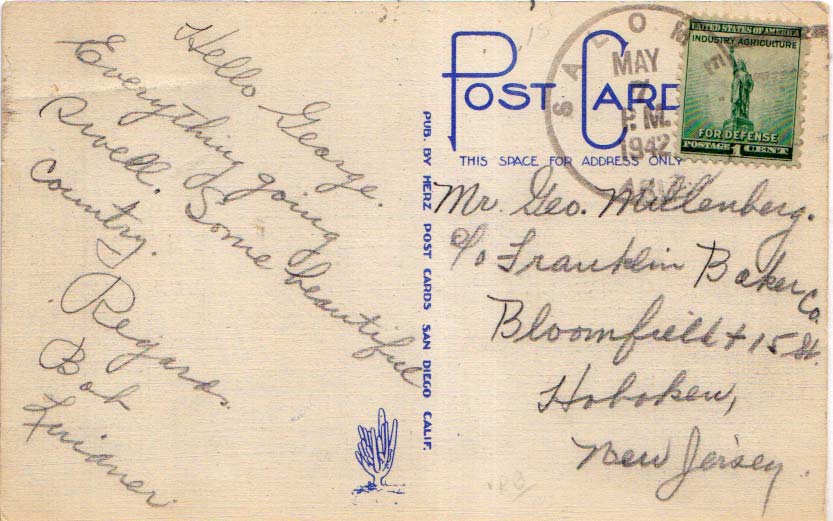 Hello George.
Everything going
swell. Some beautiful
country.
Regards.
Bob
POST CARD
THIS SPACE FOR ADDRESS ONLY
PUB. BY HERZ POST CARDS SAN DIEGO CALIF.
SALOME
MAY
7
P.M.
1942
ARIZ
UNITED STATES OF AMERICA
INDUSTRY AGRICULTURE
FOR DEFENSE
POSTAGE 1 CENT
Mr. Geo. Mullenberg.
c/o Franklin Baker Co.
Bloomfield + 15 St.
Hoboken,
New Jersey.